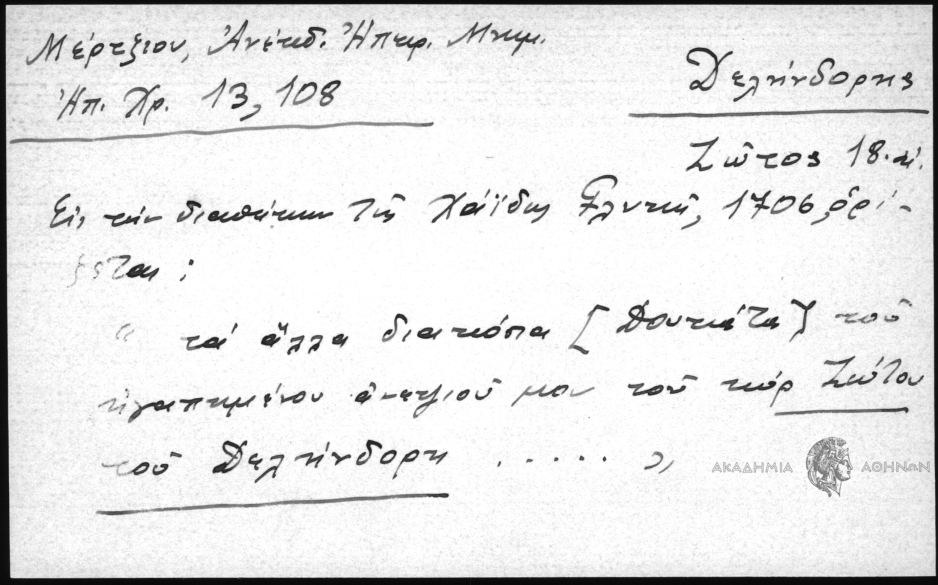 Μέρτζιου, Ἀνέκδ. Ἠπειρ. Μνημ.
Ἠπ. Χρ. 13, 108
Δεληνδορης
Ζῶτος 18. αἰ.
Εἰς τὴν διαθήκην τῆς Χάϊδως Γλυκῆ, 1706, ὁρί-
ζεται :
“ τά ἄλλα διακόσα [Δουκάτα] τοῦ
ἠγαπημένου ἀνεψιοῦ μου τοῦ κύρ Ζώτου
τοῦ Δεληνδορη . . . . . ”
ΑΚΑΔΗΜΙΑ ΑΘΗΝΩΝ